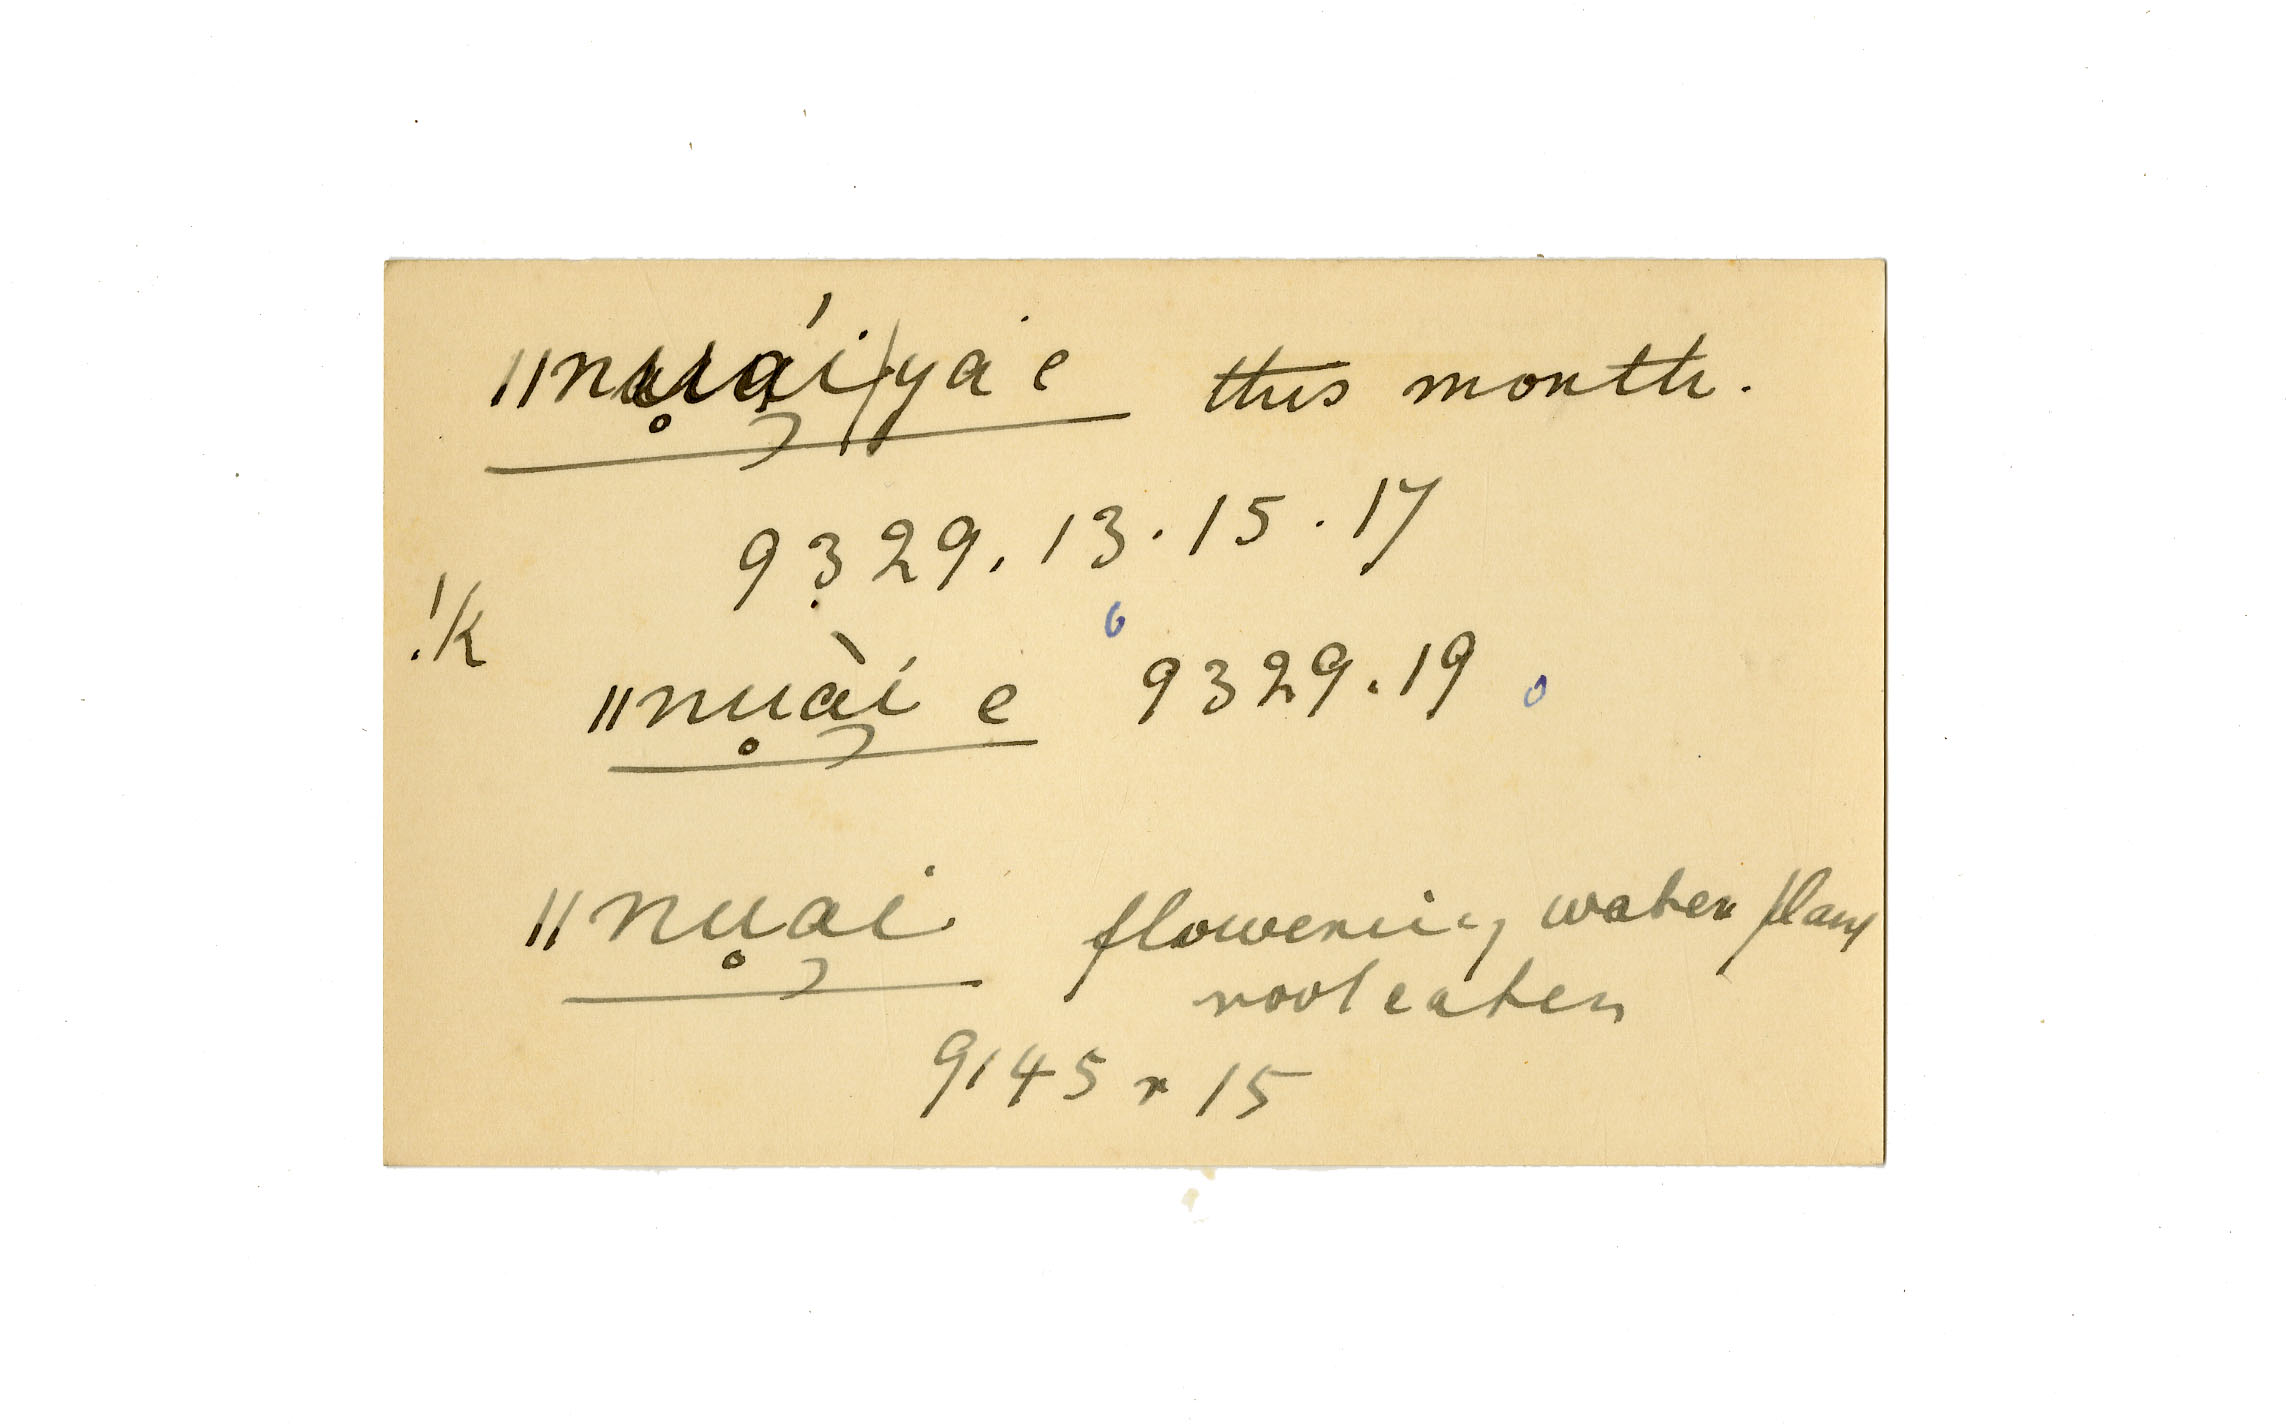 ǁnu̥a̦ı́/ya e this month.
9329.13.15.17
!k
ǁnu̥à̦i e 9329.19
ǁnu̥a̦i flowering water plant
root eaten
9145 r 15